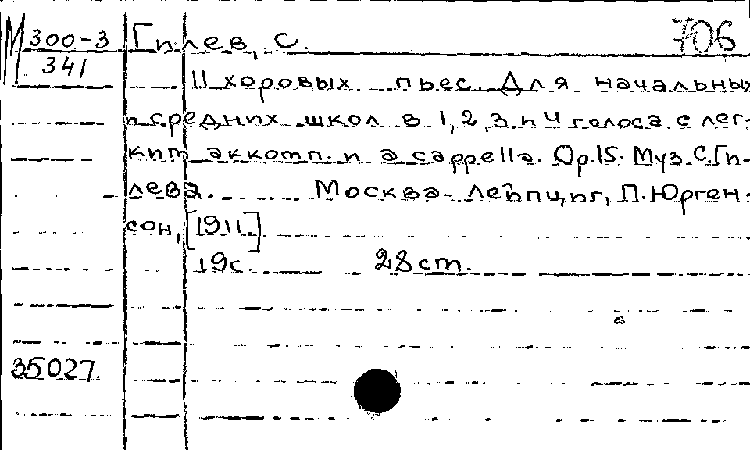 М 300-3 Гилев, С. 706
341
11 хоровых пьес для начальных
и средних школ в 1, 2, 3 и 4 голоса с лег-
ким аккомп. и a cappella. Op.15. Муз. С.Ги-
лева. Москва-Лейпциг, П.Юрген-
сон, [1911]
19с. 28cm.
35027